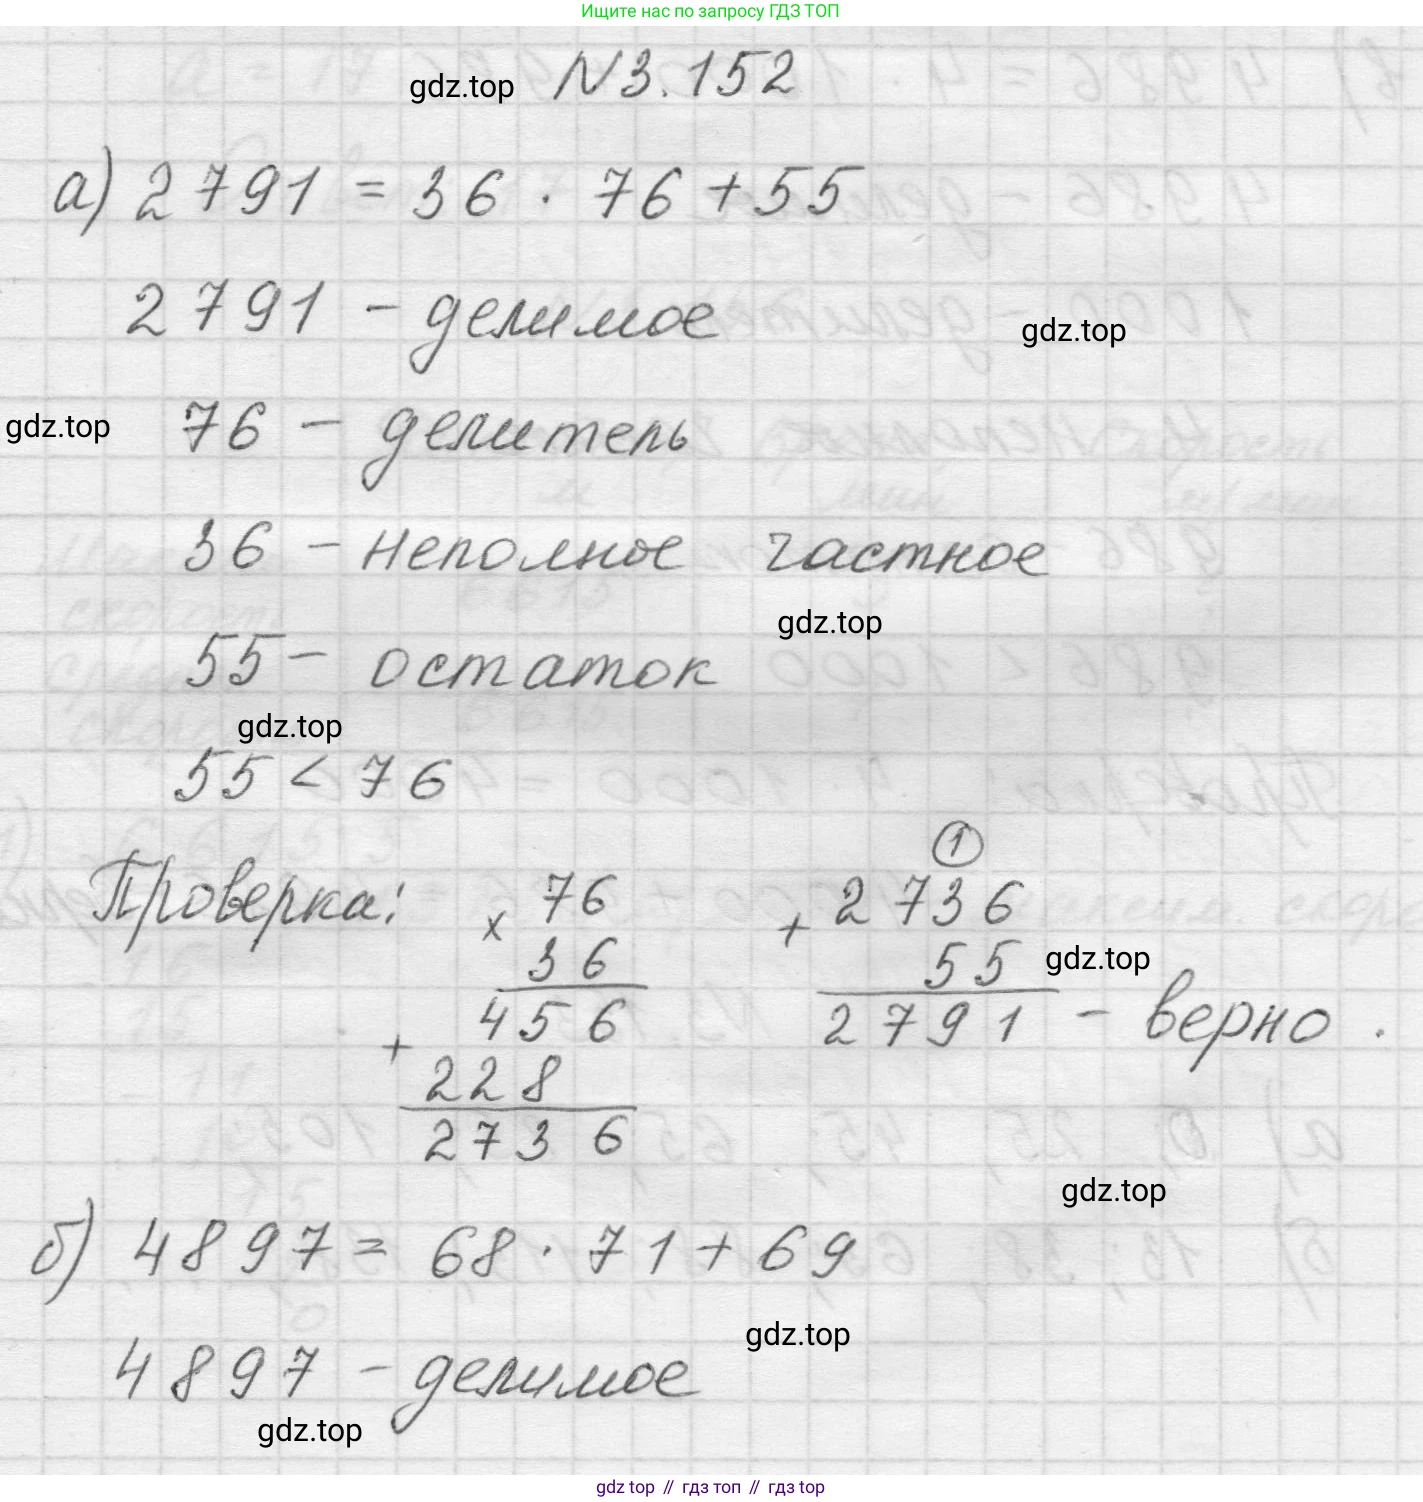 Ищите нас по запросу ГДЗ ТОП
gdz.top № 3.152
а) 2791 = 36 · 76 + 55
2791 - делимое
gdz.top
gdz.top 76 - делитель
36 - неполное частное
gdz.top
55 - остаток
gdz.top
55 < 76
Проверка:
× 76
36
456
+ 228
2736
1
+ 2736
55 gdz.top
2791 - верно.
gdz.top
б) 4897 = 68 · 71 + 69
gdz.top
4897 - делимое
gdz.top
gdz top // гдз топ // gdz top